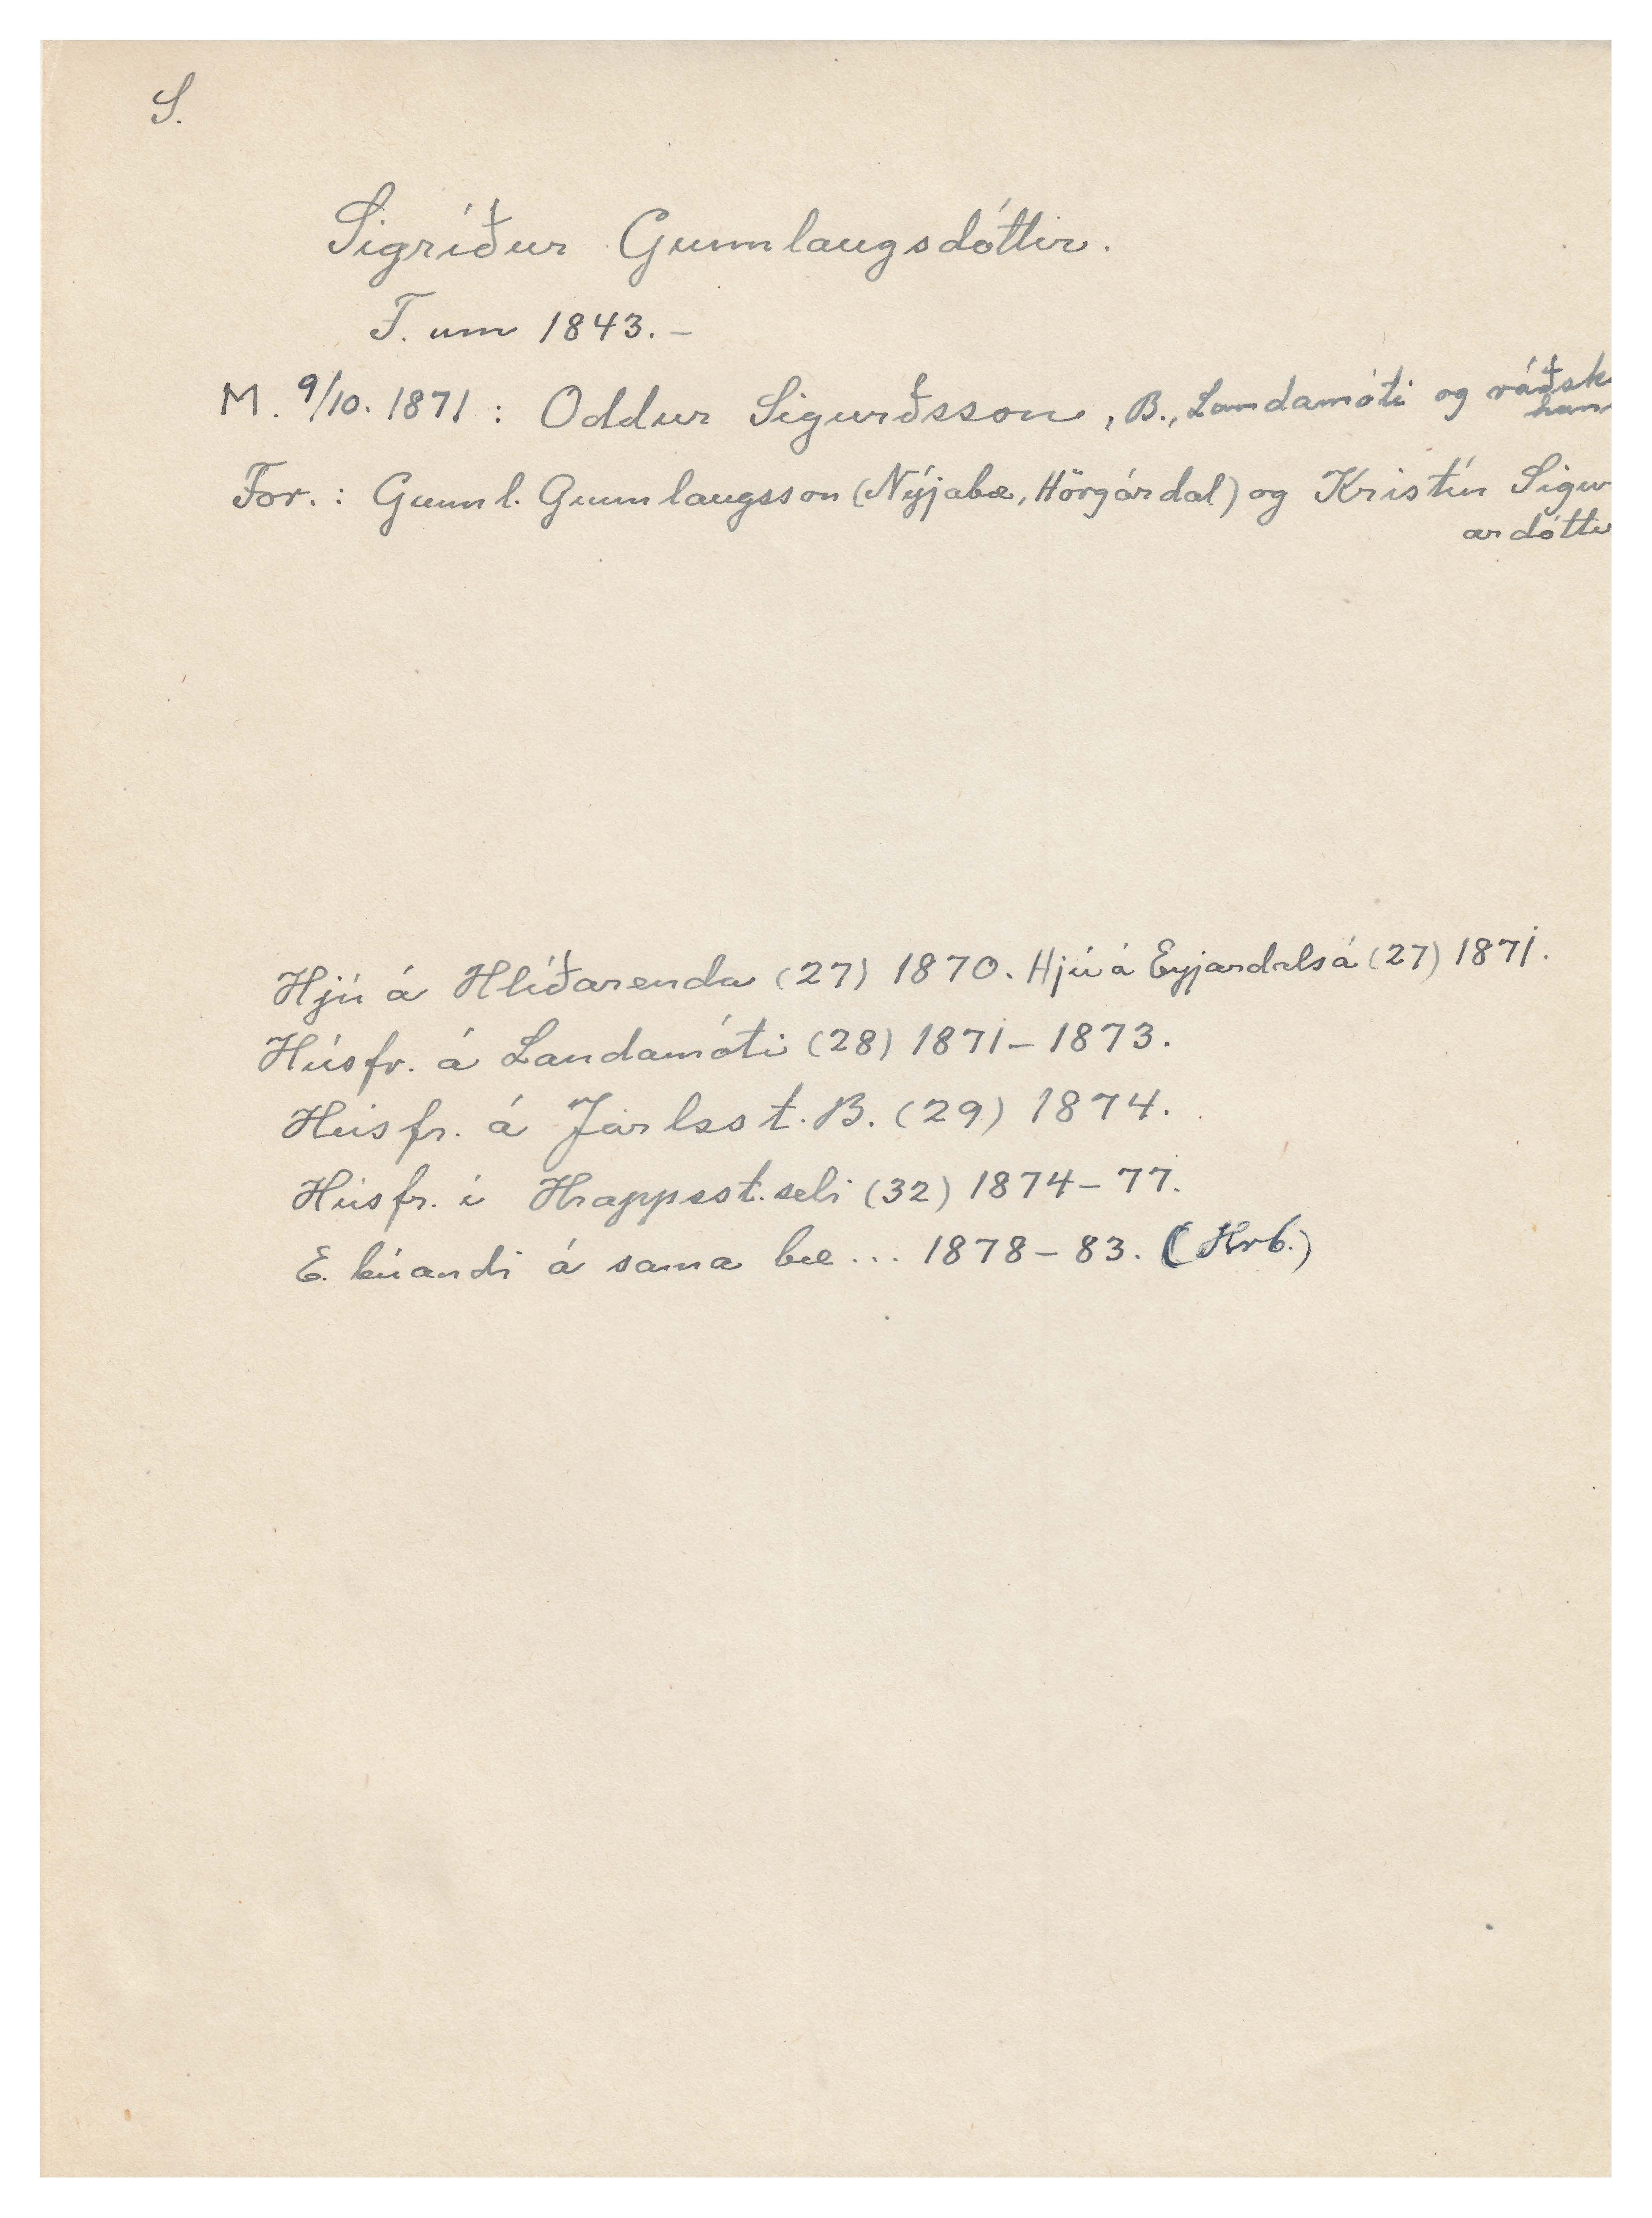 S.
Sigríður Gunnlaugsdóttir.
F. um 1843. –
M. 9/10. 1871 : Oddur Sigurðsson, B., Landamóti og ráðsk
hans
For. : Gunnl. Gunnlaugsson (Nýjabæ, Hörgárdal) og Kristín Sigur
ardótti
Hjú á Hlíðarenda (27) 1870. Hjú á Eyjardalsá (27) 1871.
Húsfr. á Landamóti (28) 1871 – 1873.
Húsfr. á Jarlsst. B. (29) 1874.
Húsfr. í Hrappsst.seli (32) 1874 – 77.
E. búandi á sama bæ ... 1878 – 83. (Hrb.)